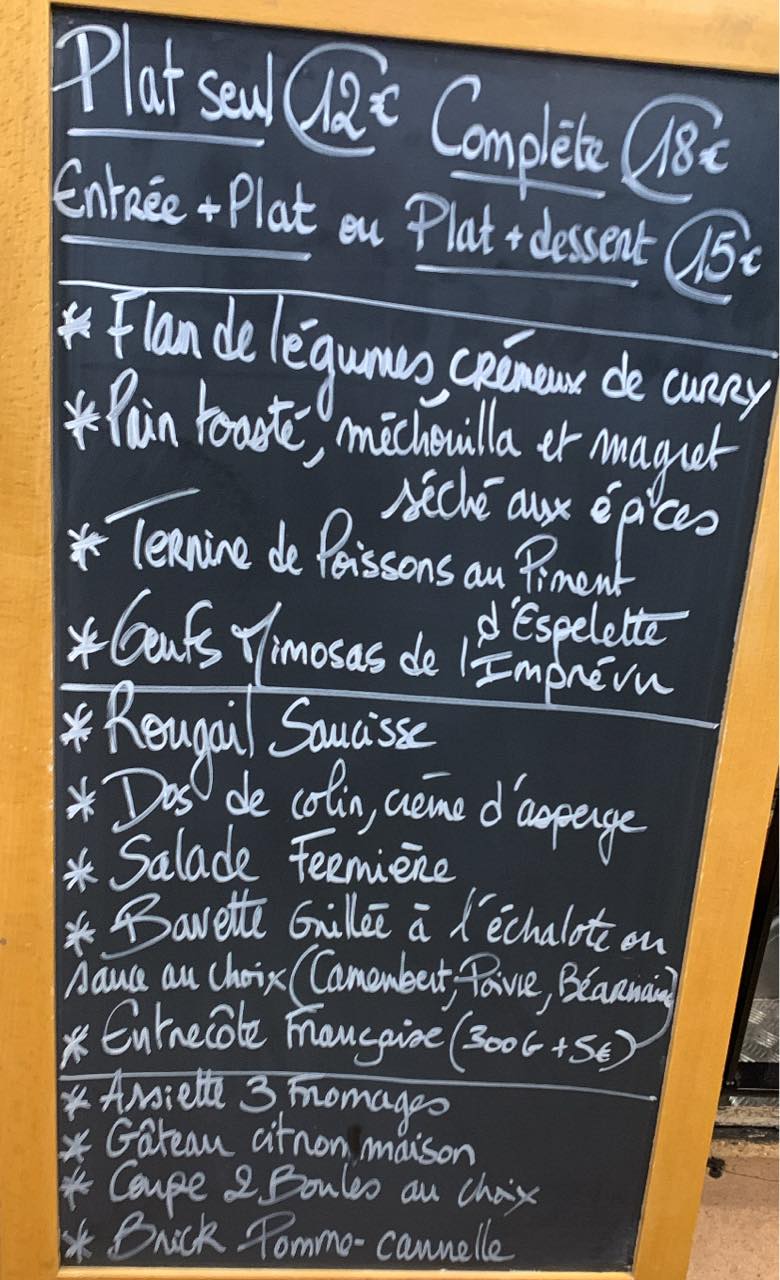 Plat seul 12€ Complète 18€
Entrée + Plat ou Plat + dessert 15€
* Flan de légumes, crémeux de curry
* Pain toasté, méchouilla et magret
séché aux épices
* Terrine de Poissons au Piment
d'Espelette
* Oeufs Mimosas de l'Imprévu
* Rougail Saucisse
* Dos de colin, crème d'asperge
* Salade Fermière
* Bavette Grillée à l'échalote ou
sauce au choix (Camembert, Poivre, Béarnaise)
* Entrecôte Française (300G + 5€)
* Assiette 3 Fromages
* Gâteau citron maison
* Coupe 2 Boules au choix
* Brick Pomme-cannelle